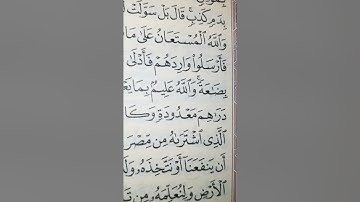 بِدَمٍ كَذِبٍ قَالَ بَلْ سَوَّلَتْ
وَاللَّهُ الْمُسْتَعَانُ عَلَىٰ مَا
فَأَرْسَلُوا وَارِدَهُمْ فَأَدْلَىٰ
بِضَاعَةً وَاللَّهُ عَلِيمٌ بِمَا يَعْ
دَرَاهِمَ مَعْدُودَةٍ وَكَا
الَّذِي اشْتَرَاهُ مِن مِّصْرَ
أَن يَنفَعَنَا أَوْ نَتَّخِذَهُ وَلَ
الْأَرْضِ وَلِنُعَلِّمَهُ مِن تَ